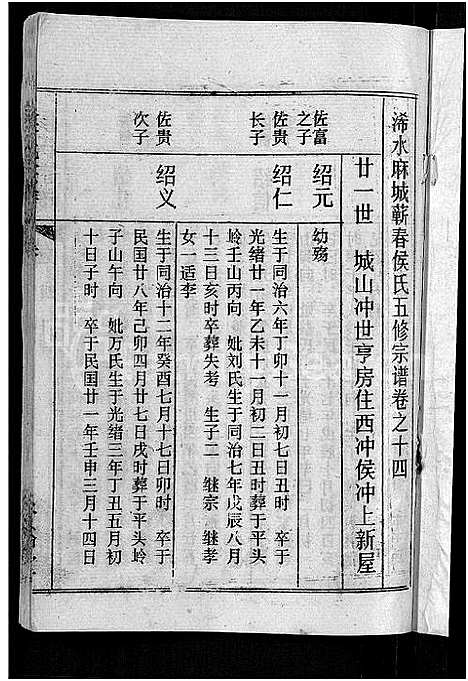 浠水麻城蕲春侯氏五修宗谱卷之十四
廿一世　城山冲世亨房住西冲侯冲上新屋
佐富
之子
绍元
幼殇
佐贵
长子
绍仁
生于同治六年丁卯十一月初七日丑时　卒于
光绪廿一年乙未十一月初二日丑时葬于平头
岭壬山丙向　妣刘氏生于同治七年戊辰八月
十三日亥时卒葬失考　生子二　继宗　继孝
女一适李
佐贵
次子
绍义
生于同治十二年癸酉七月十七日卯时　卒于
民国廿八年己卯四月廿七日戌时葬于平头岭
子山午向　妣万氏生于光绪三年丁丑五月初
十日子时　卒于民国廿一年壬申三月十四日